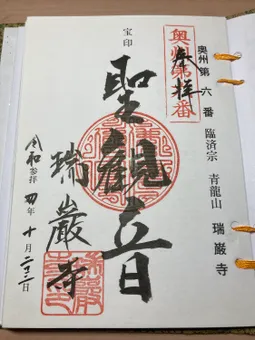 奥州第六番 臨済宗 青龍山 瑞巌寺
奥州第六番
奉拝
宝印
聖観世音
瑞巌寺
令和 四年 十月 二三日
参拝